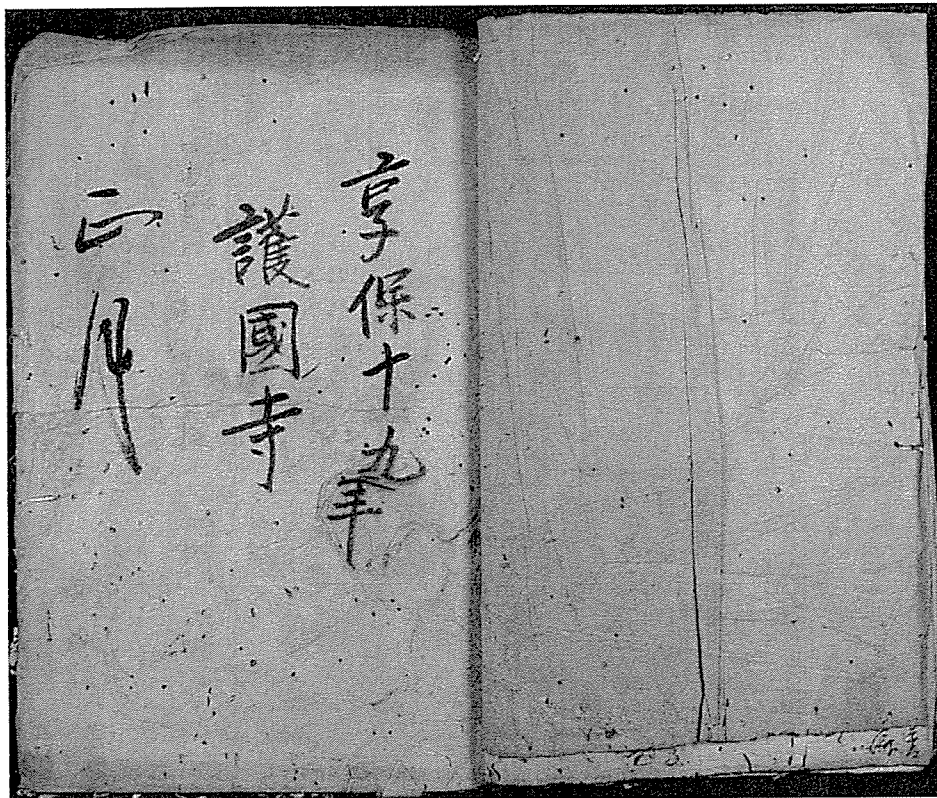 享保十九年
護國寺
正月